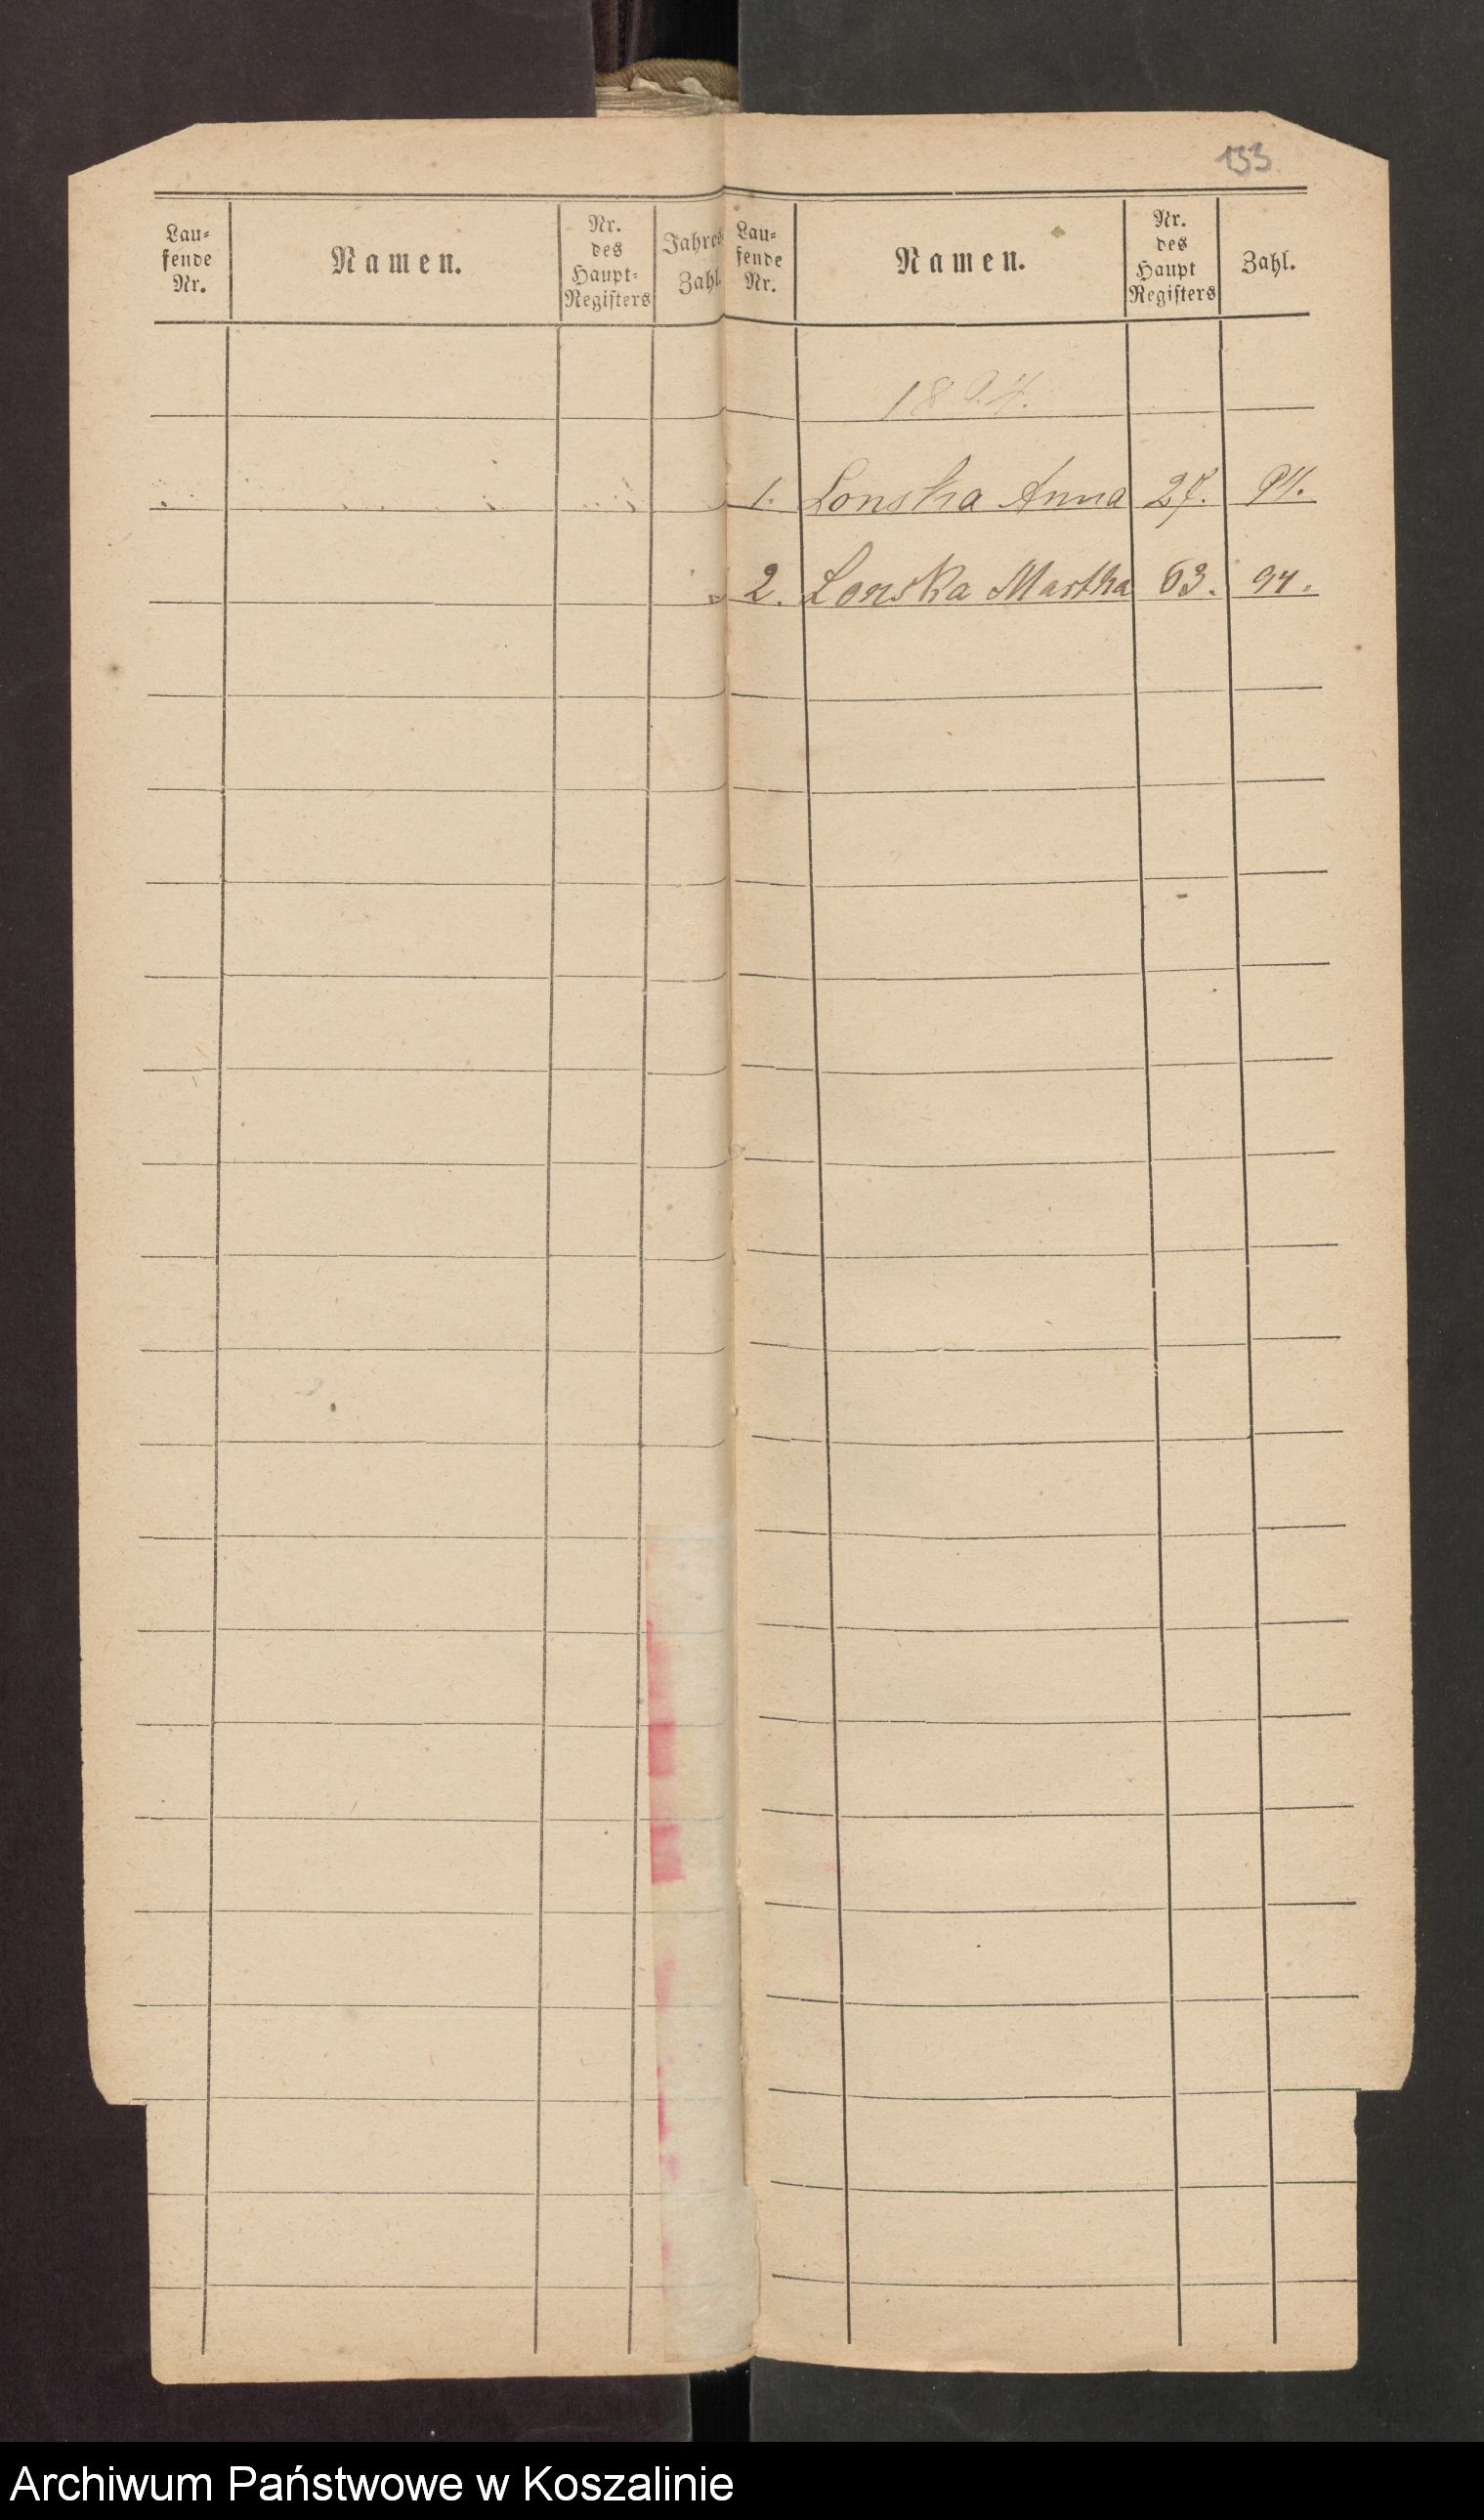 133.
Lau-
fende
Nr.
Namen.
Nr.
des
Haupt-
Registers
Jahres
Zahl
Lau-
fende
Nr.
Namen.
Nr.
des
Haupt
Registers
Zahl.
1894.
1. Lonska Anna 27. 94.
2. Lonska Martha 63. 94.
Archiwum Państwowe w Koszalinie